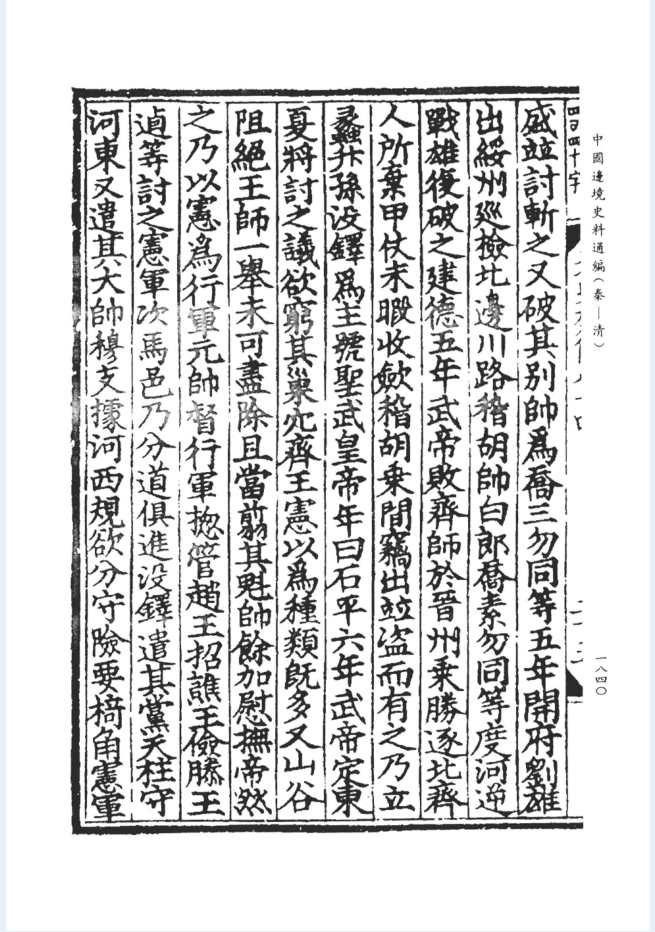 中國邊境史料通編(秦—清)
一八四〇
四百四十字
盛並討斬之又破其別帥爲喬三勿同等五年開府劉雄
出綏州巡檢北邊川路稽胡帥白郎喬素勿同等度河逆
戰雄復破之建德五年武帝敗齊師於晉州乗勝逐北齊
人所棄甲仗未暇收斂稽胡乗間竊出並盜而有之乃立
蠡升孫没鐸爲主號聖武皇帝年曰石平六年武帝定東
夏將討之議欲窮其巢穴齊王憲以爲種類既多又山谷
阻絕王師一舉未可盡除且當翦其魁帥餘加慰撫帝然
之乃以憲爲行軍元帥督行軍揔管趙王招譙王儉滕王
逌等討之憲軍次馬邑乃分道俱進没鐸遣其黨天柱守
河東又遣其大帥穆支據河西規欲分守險要掎角憲軍